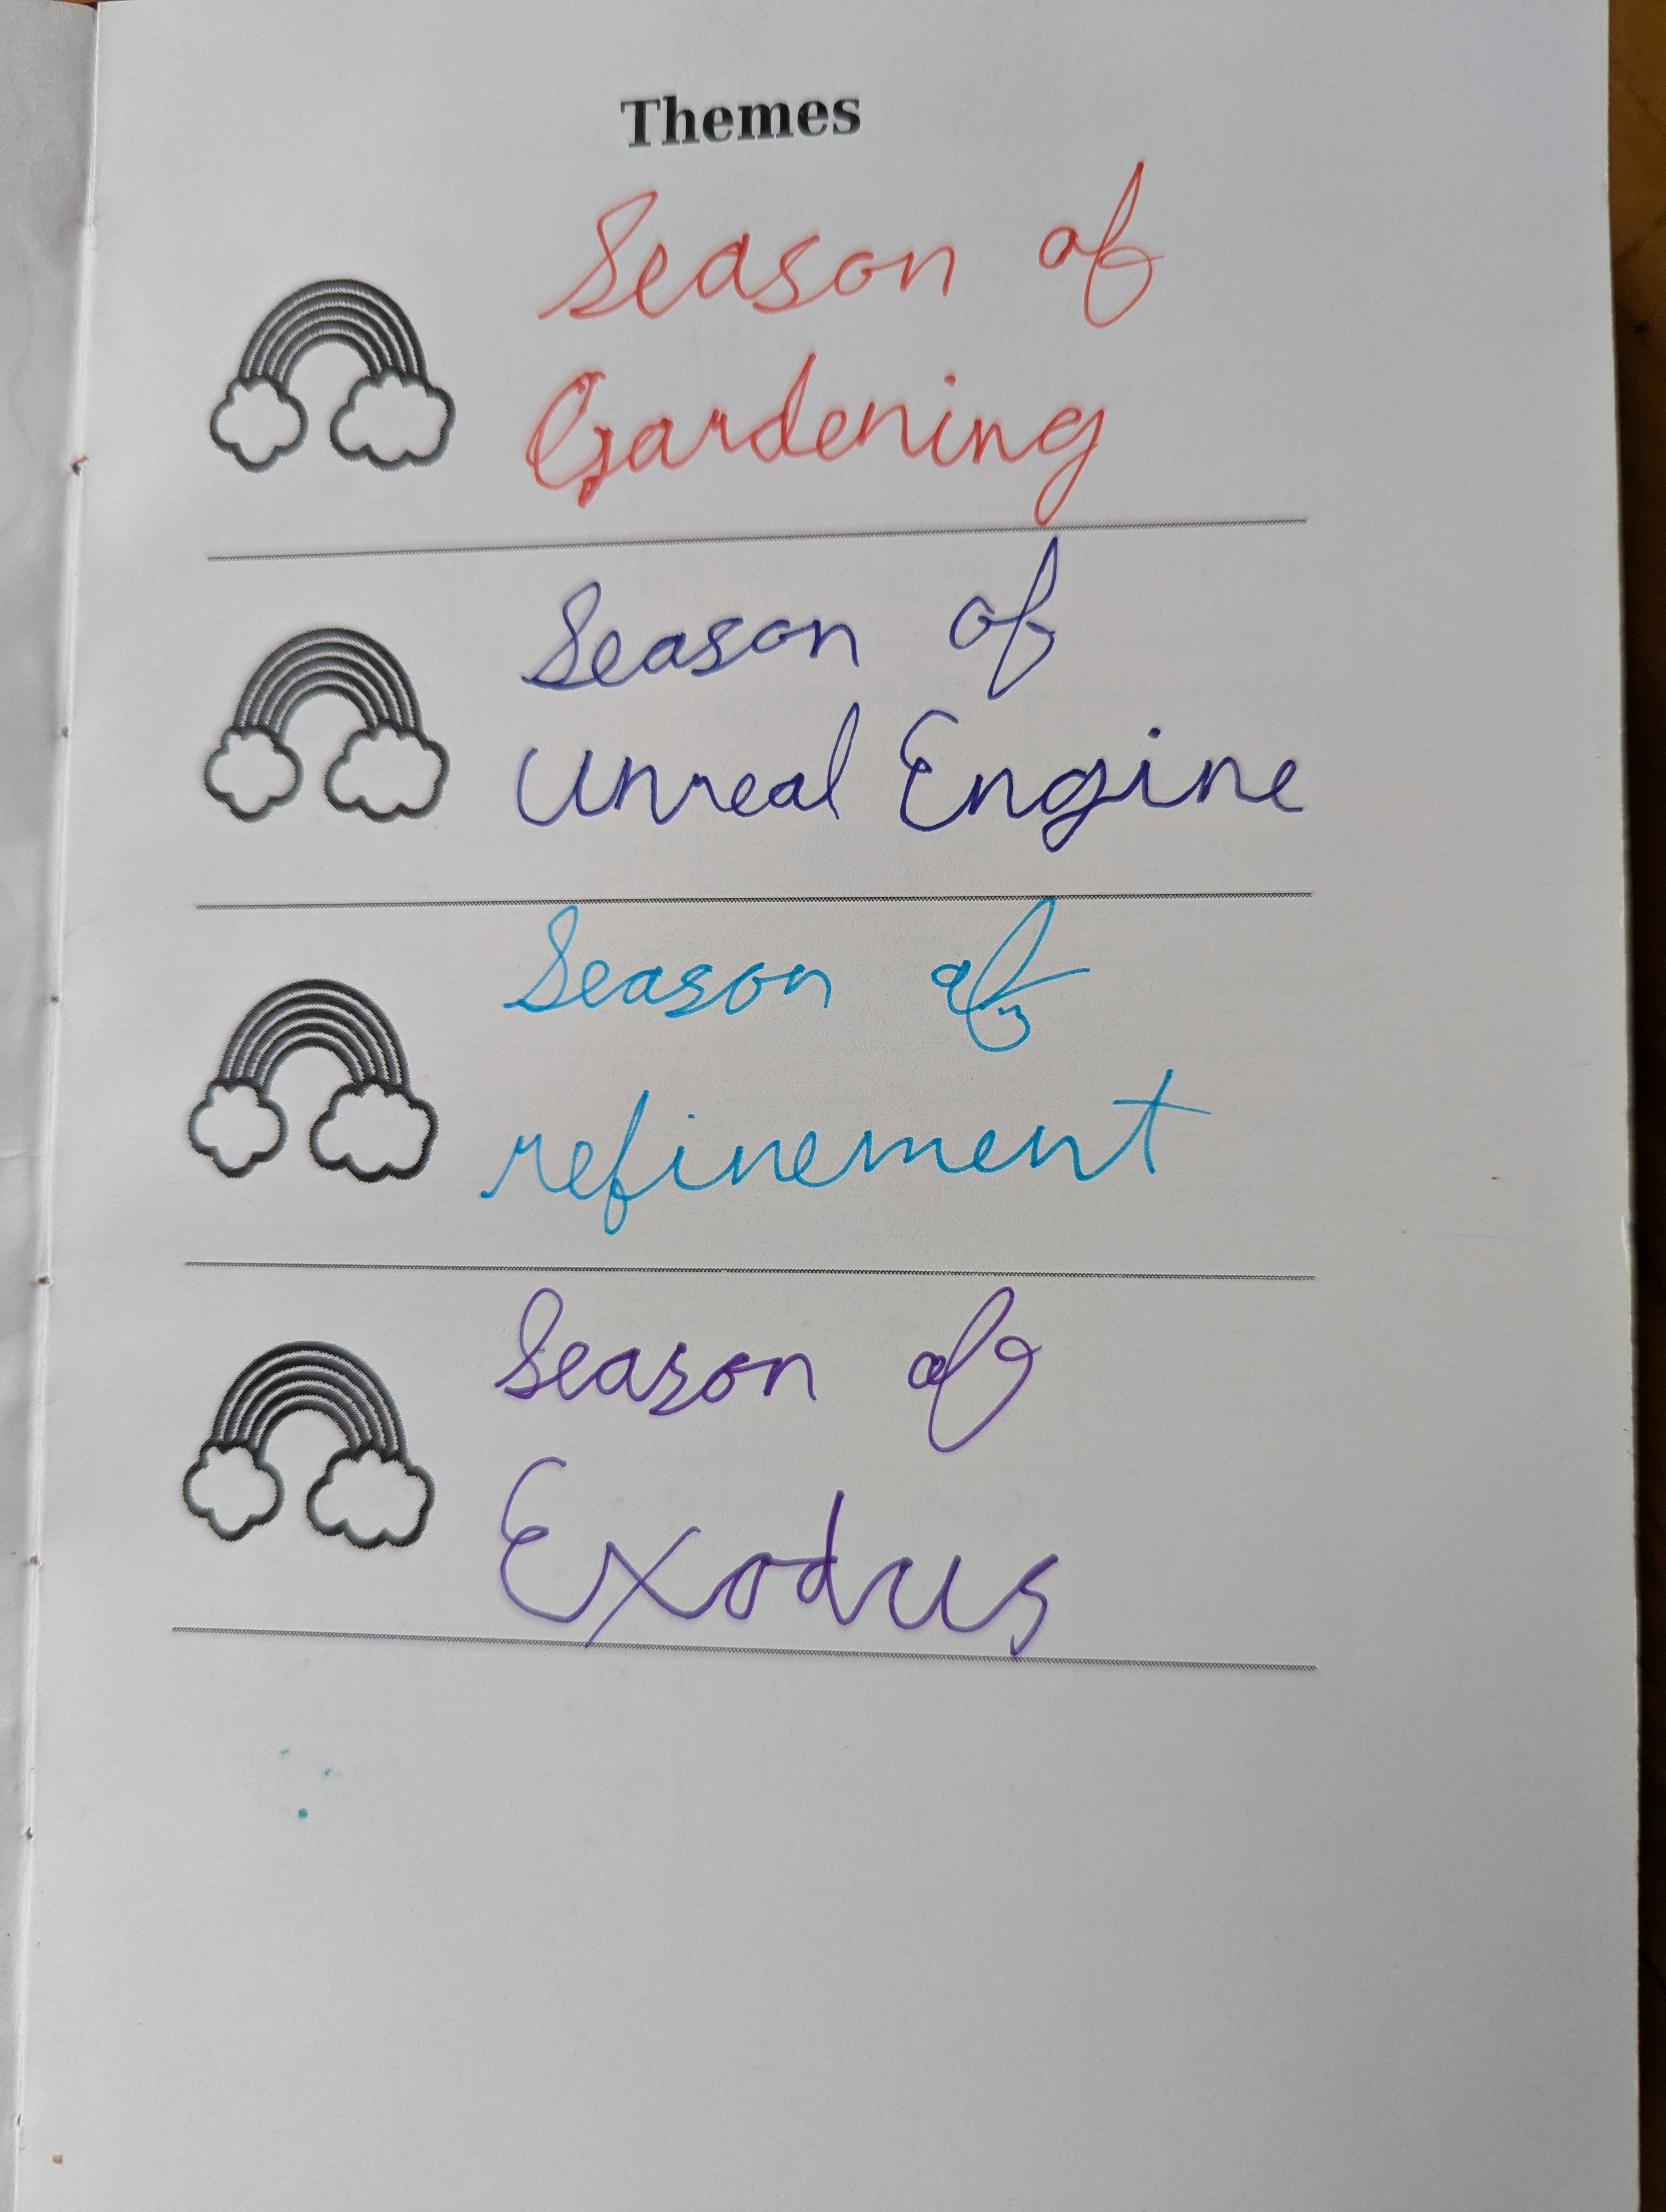 Themes
Season of
Gardening
Season of
Unreal Engine
Season of
refinement
Season of
Exodus